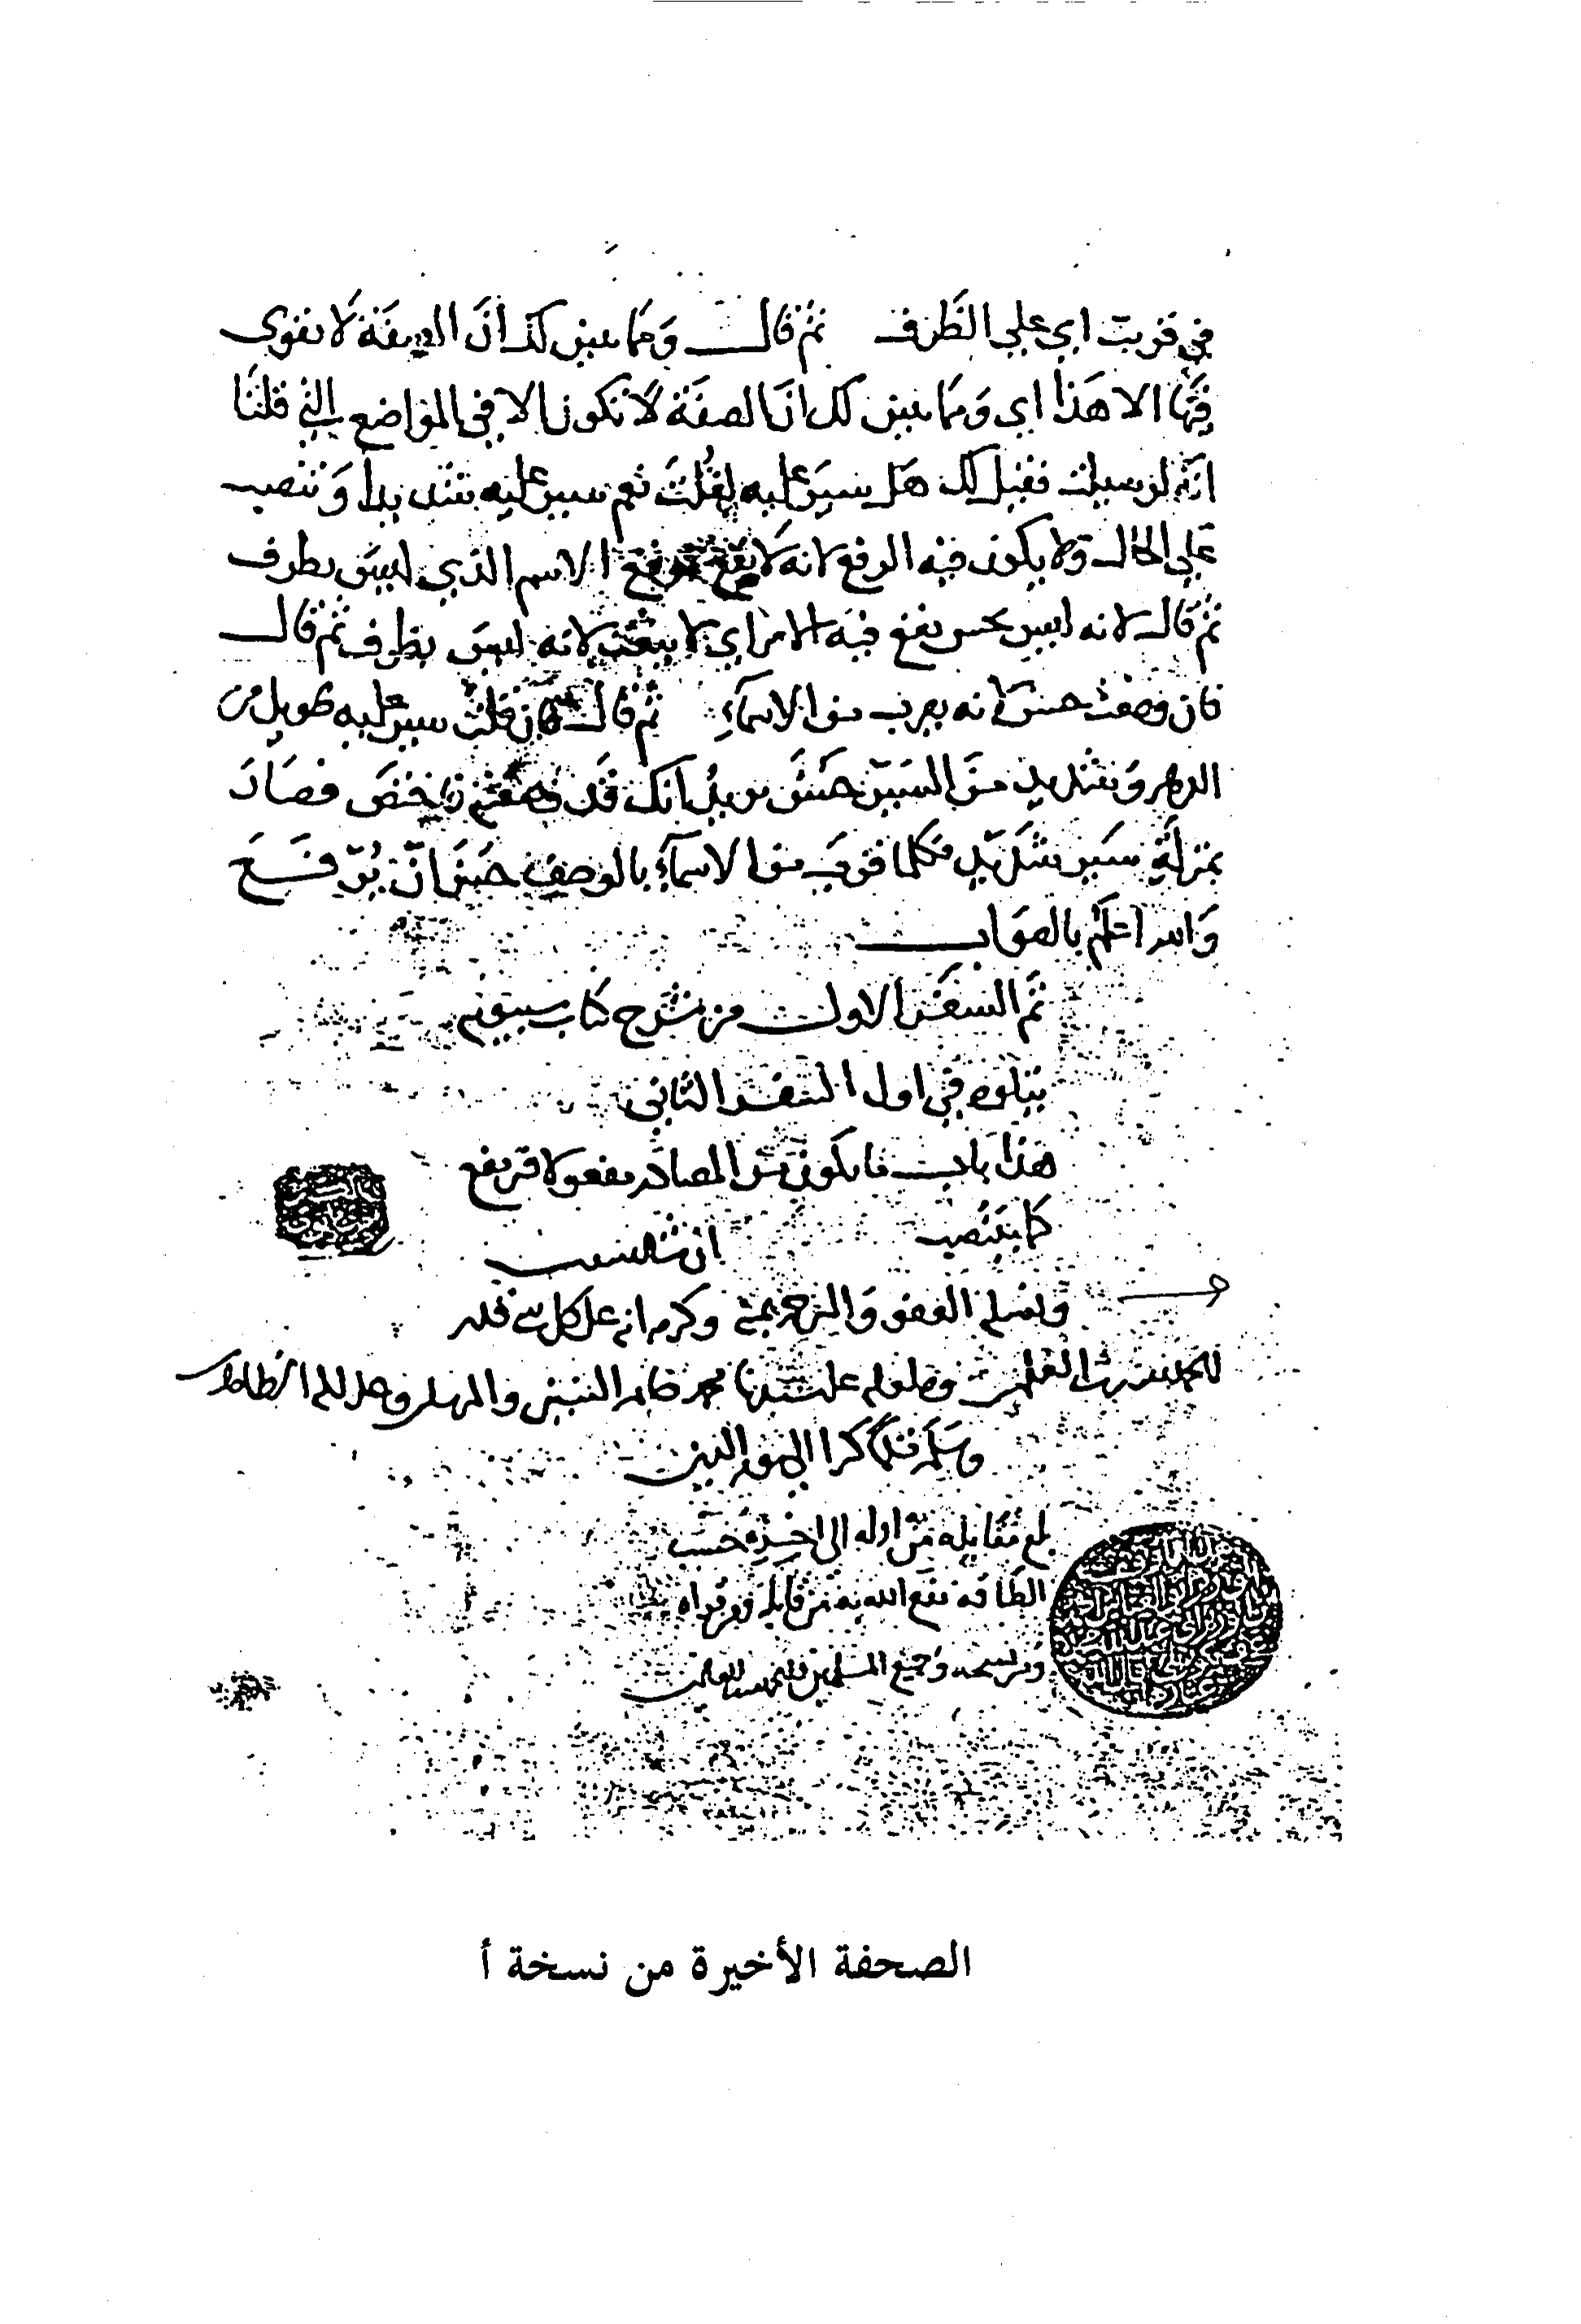 في قريب اي على الظرف ثم قال ومما يبين لك ان الصفة لا تقوى
فيها الا هذا اي ومما يبين لك ان الصفة لا تكون الا في المواضع التي قلنا
انه لو سيلت فقيل لك هل سير عليه لقلت نعم سير عليه شديدا وتنصب
على الحال ولا يكون فيه الرفع لانه لا يقع موقع الاسم الذي ليس بظرف
ثم قال لانه ليس يحسن يقع فيه الامر اي لانه ليس بظرف ثم قال
فان وصفت حسن لانه يقرب من الاسماء ثم قال فان قلت سير عليه طويل من
الدهر وشديد من السير حسن يريد انك قد وصفته فاختص فصار
بمنزلة سير شديد فكلما قرب من الاسماء بالوصف حسن ان يرفع
والله اعلم بالصواب
تم السفر الاول من شرح كتاب سيبويه
يتلوه في اول السفر الثاني
هذا باب ما يكون من المصادر مفعولا فيرتفع
كما ينتصب
وكرمه انه على كل شي قدير
الحمد لله رب العلمين وصلوته على سيدنا محمد خاتم النبيين
وسلم الى يوم الدين
بلغ مقابله من اوله الى اخره حسب
الطاقه نفع الله به من قابله ومن قراه
ومن نسخه وجميع المسلمين
الصحفة الأخيرة من نسخة أ